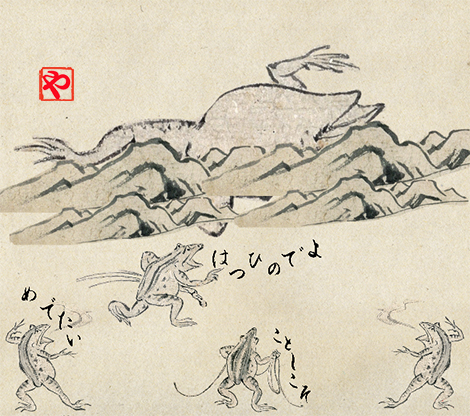 や
はつひのでよ
めでたい
ことしこそ